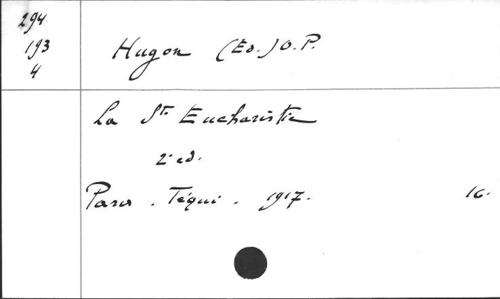 294
193
4
Hugon (Ed.) O.P.
La Ste Eucharistie
2e ed.
Paris. Téqui. 1917. 16.